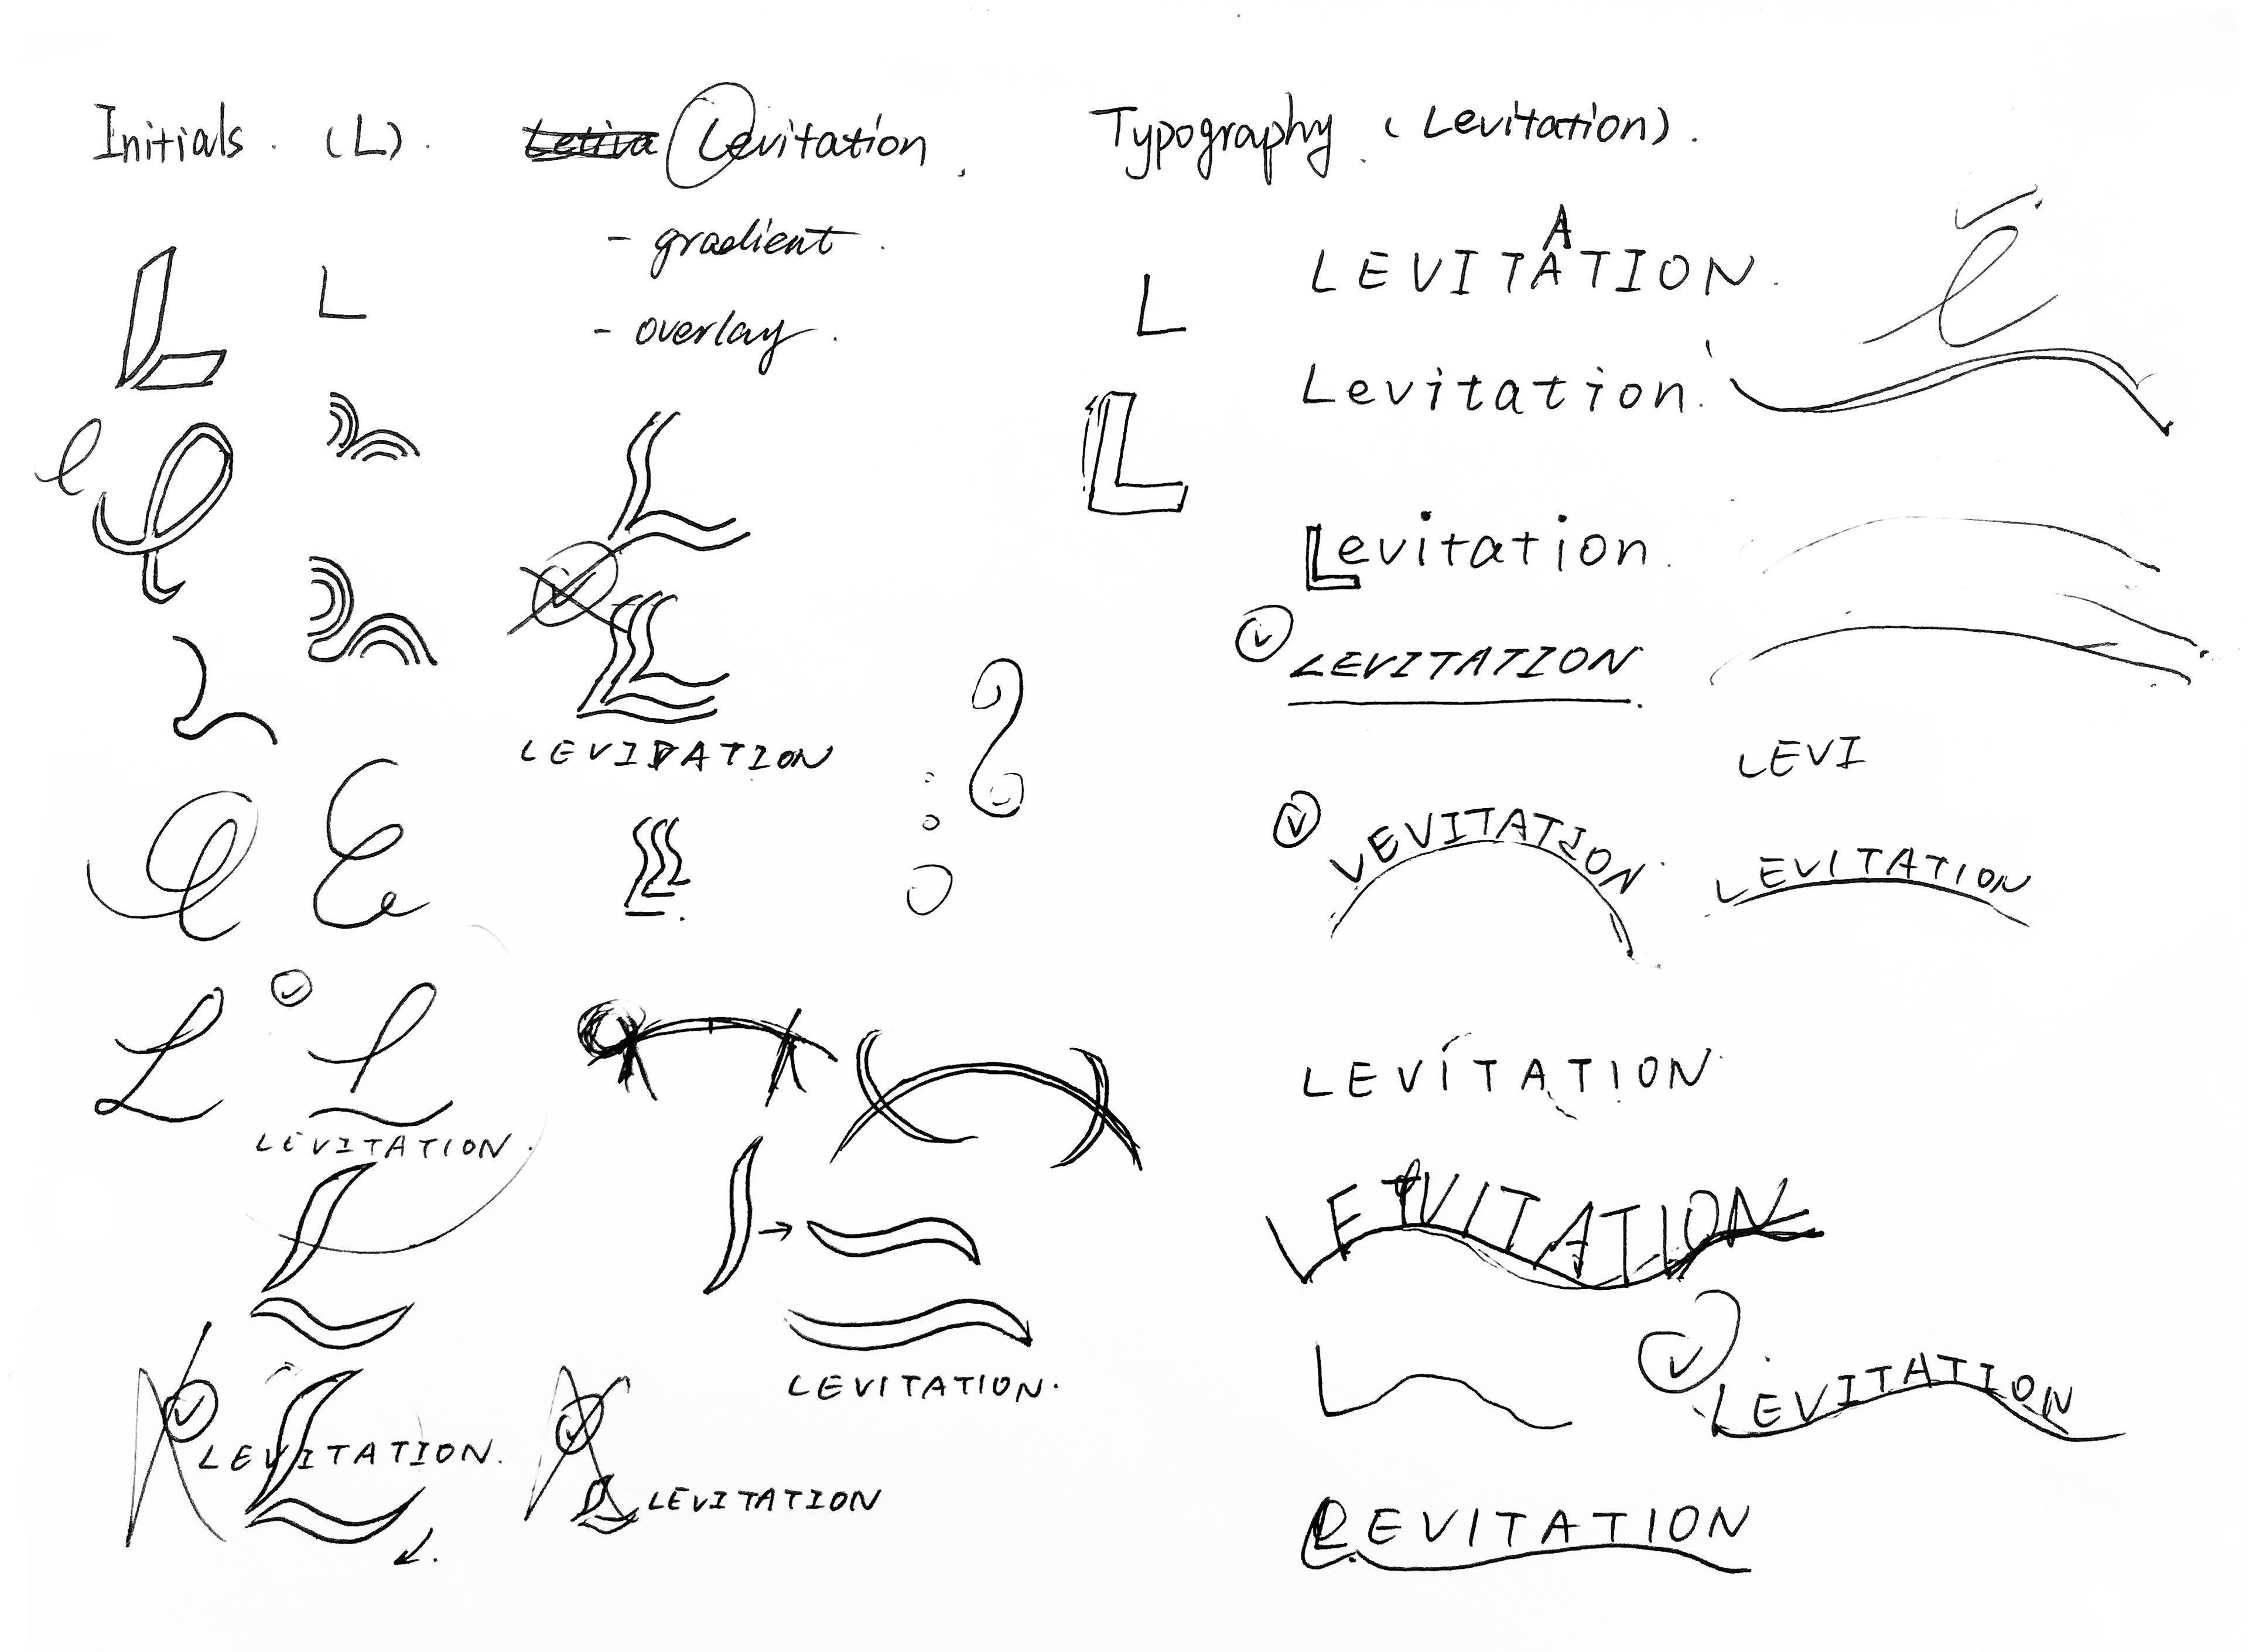 Initials. (L).
Levitation.
- gradient.
- overlay.
L
L
L
LEVIDATION
L
L
LEVITATION.
LEVITATION.
LEVITATION.
LEVITATION
Typography. (Levitation).
A
LEVITATION.
L
Levitation.
L
Levitation.
LEVITATION.
LEVI
LEVITATION
LEVITATION
LEVITATION
LEVITATION
L
LEVITATION
LEVITATION